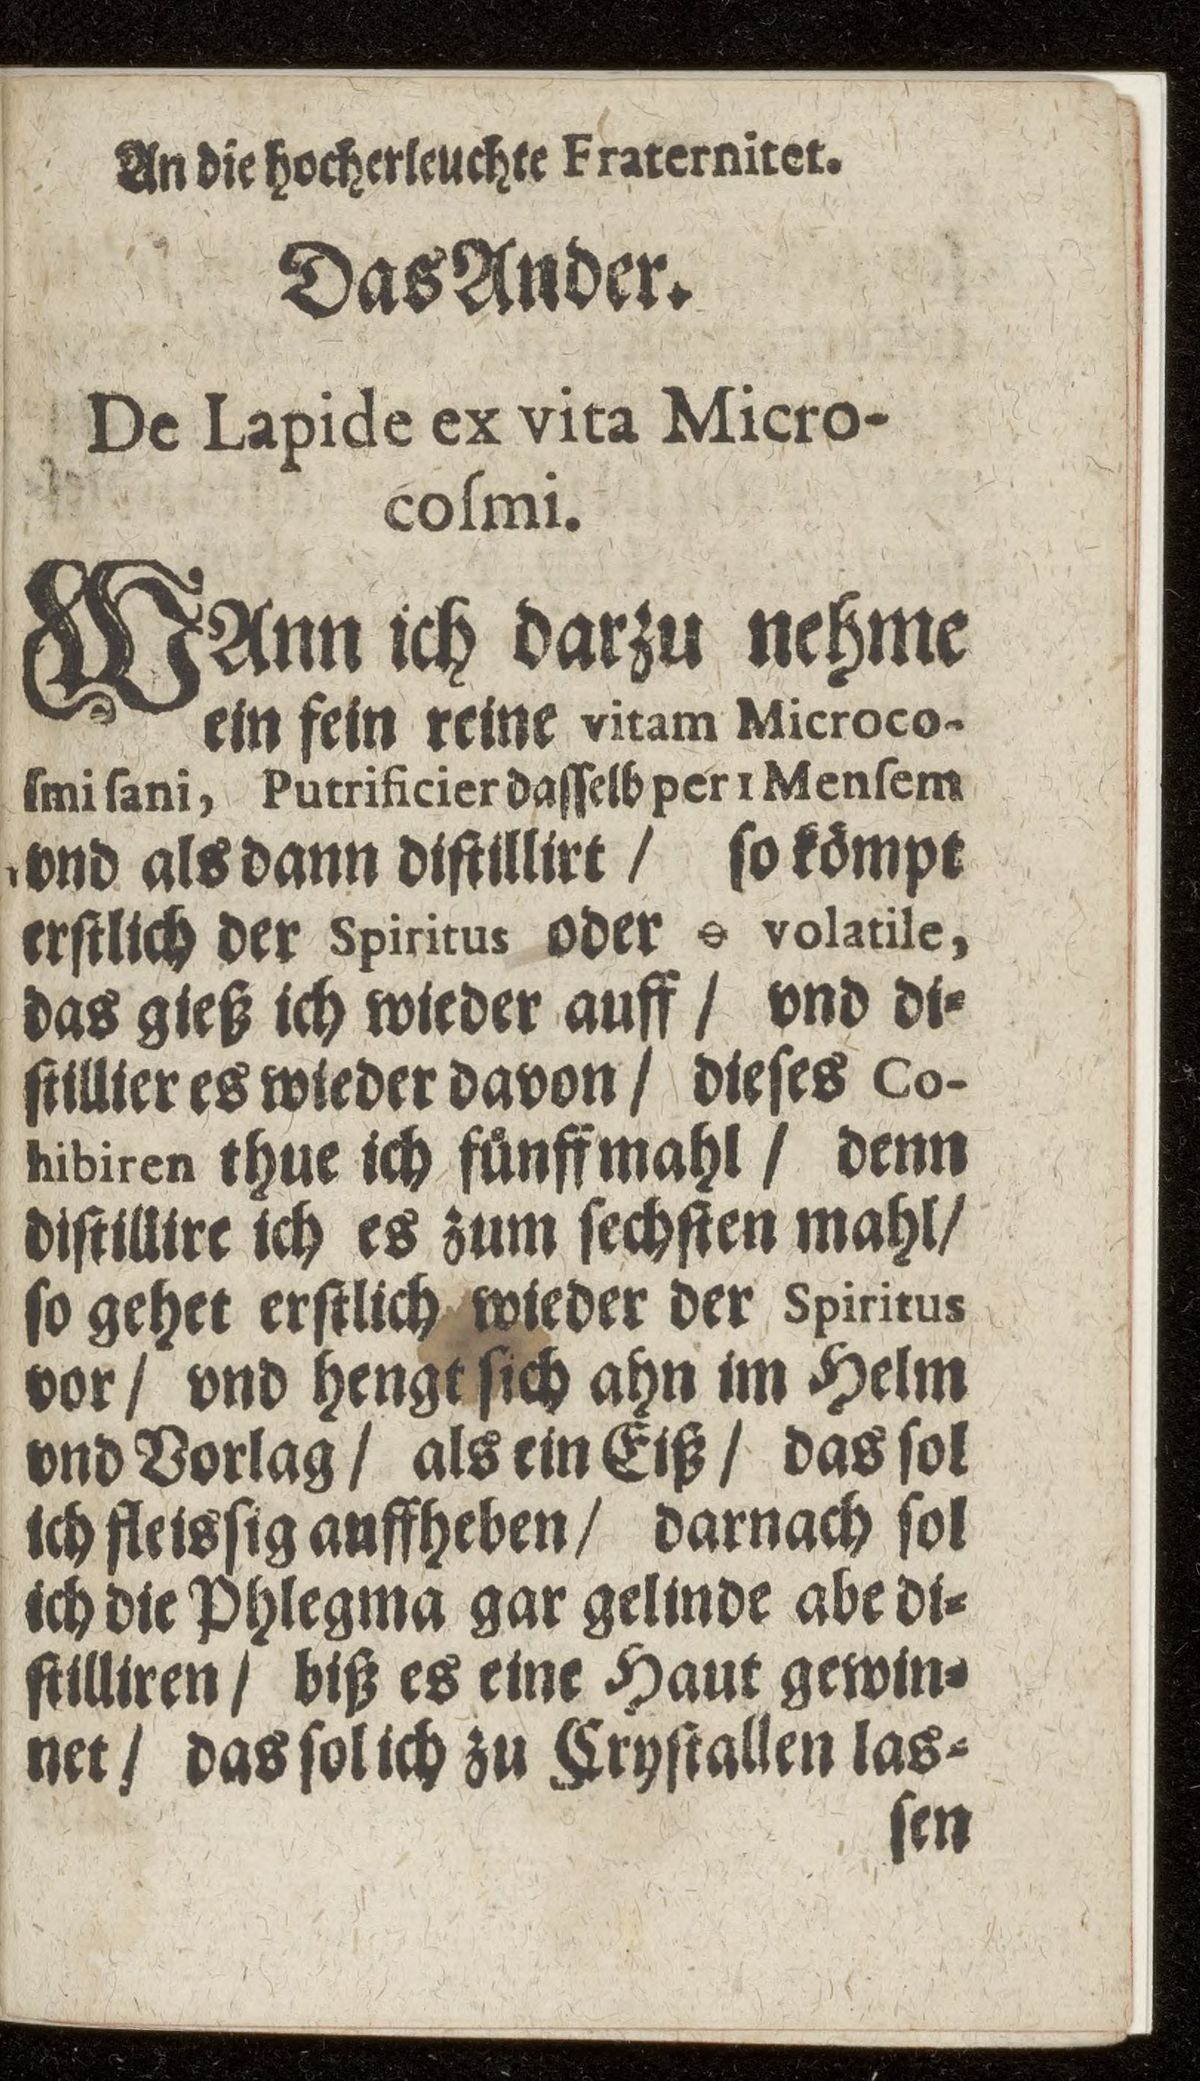 An die hocherleuchte Fraternitet.
Das Ander.
De Lapide ex vita Micro-
coſmi.
WAnn ich darzu nehme
ein fein reine vitam Microco-
ſmi ſani, Putrificier daſſelb per 1 Menſem
vnd als dann diſtillirt / ſo koͤmpt
erſtlich der Spiritus oder ⊖ volatile,
das gieß ich wieder auff / vnd di-
ſtillier es wieder davon / dieſes Co-
hibiren thue ich fuͤnff mahl / denn
diſtillire ich es zum ſechſten mahl/
ſo gehet erſtlich wieder der Spiritus
vor / vnd hengt ſich ahn im Helm
vnd Vorlag / als ein Eiß / das ſol
ich fleisſig auffheben / darnach ſol
ich die Phlegma gar gelinde abe di-
ſtilliren / biß es eine Haut gewin-
net / das ſol ich zu Cryſtallen laſ-
ſen